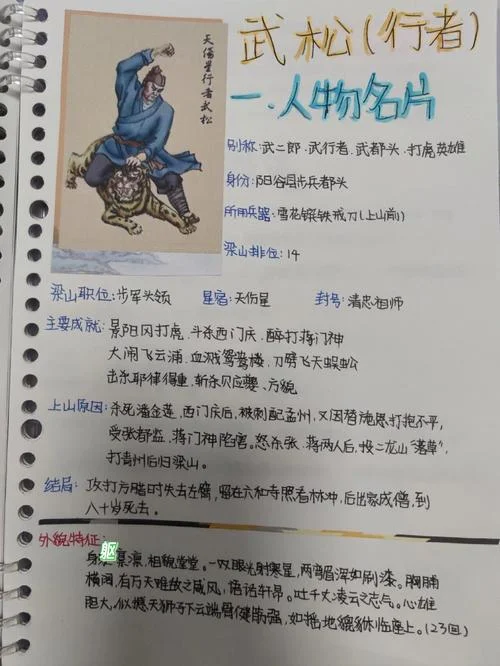 天伤星行者武松
武松(行者)
一.人物名片
别称:武二郎.武行者.武都头.打虎英雄
身份:阳谷县步兵都头
所用兵器:雪花镔铁戒刀(上山前)
梁山排位:14
梁山职位:步军头领 星宿:天伤星 封号:清忠祖师
主要成就:景阳冈打虎.斗杀西门庆.醉打蒋门神
大闹飞云浦.血溅鸳鸯楼.刀劈飞天蜈蚣
击杀耶律得重.斩杀贝应夔.方貌
上山原因:杀死潘金莲,西门庆后,被刺配孟州,又因替施恩打抱不平,
受张都监,蒋门神陷害。怒杀张.蒋两人后,投二龙山“落草”,
打青州后归梁山。
结局:攻打方腊时失去左臂,留在六和寺照看林冲,后出家成僧,到
八十岁死去。
外貌特征:
身躯凛凛,相貌堂堂。一双眼光射寒星,两弯眉浑如刷漆。胸脯
横阔,有万夫难敌之威风,语话轩昂。吐千丈凌云之志气。心雄
胆大,似撼天狮子下云端骨健筋强,如摇地貔貅临座上。(23回)